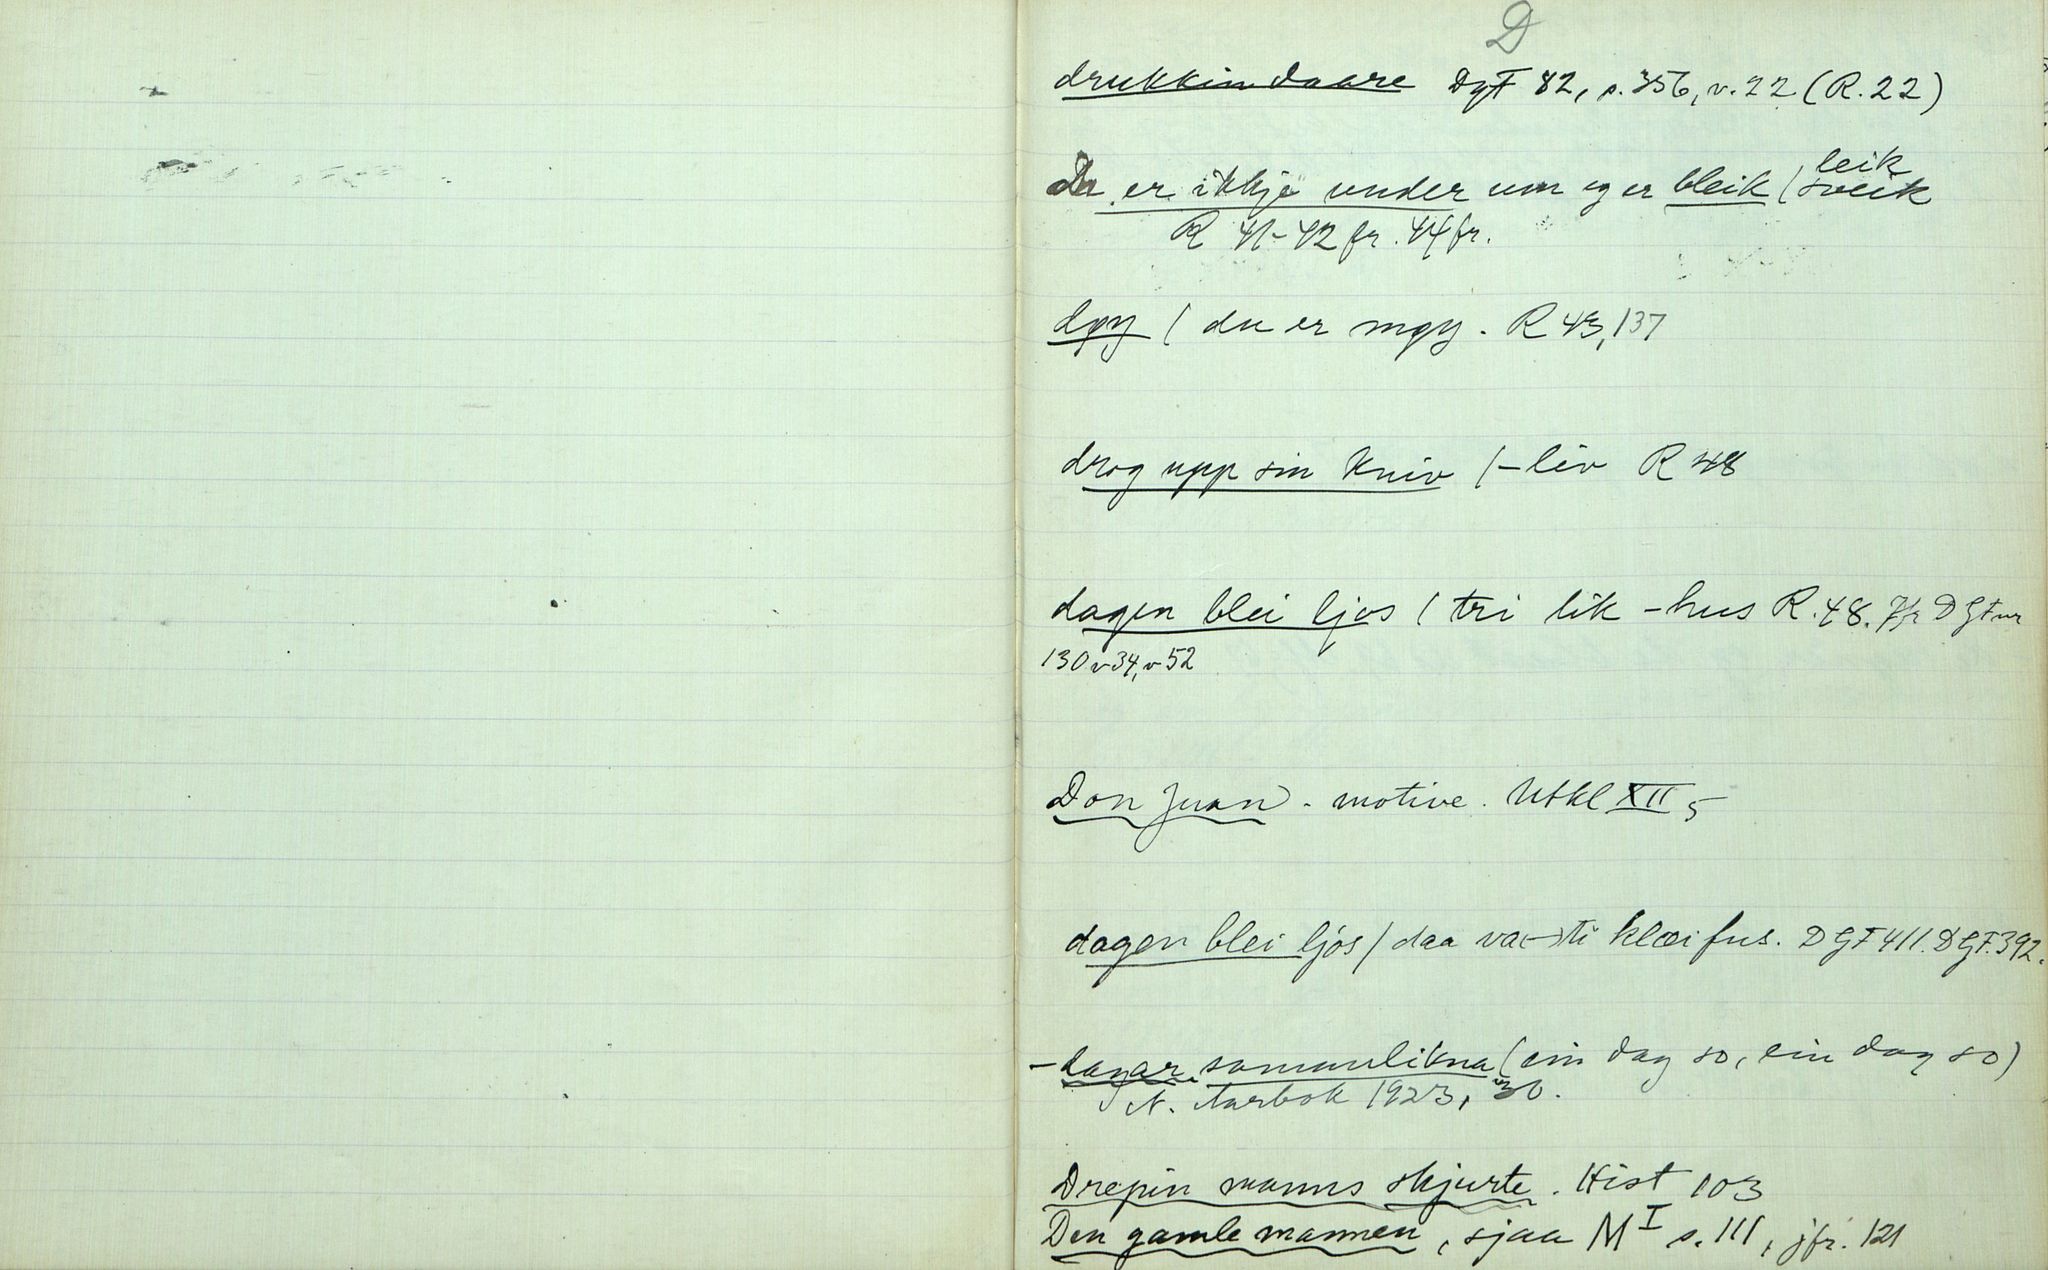 D
drukkin daare DgF 82, s. 356, v. 22 (R. 22)
leik
Da er ikkje under um eg er bleik / sveik
R 41-42 fr. 44 fr.
døy / du er møy. R 43, 137
drog upp sin kniv / - liv R 48
dagen blei ljos / tri lik - hus R. 48. Jfr DGF nr
130 v 34, v 52
Don Juan - motive. Utkl XII 5
dagen blei ljos / daa va klæi fus. DGF 411. DGF. 392.
- dagar samanlikna (ein dag so, ein dag so)
N. Aarbok 1923, 30.
Drepin manns skjurte. Hist 103
Den gamle mannen, sjaa M I s. 111, jfr. 121